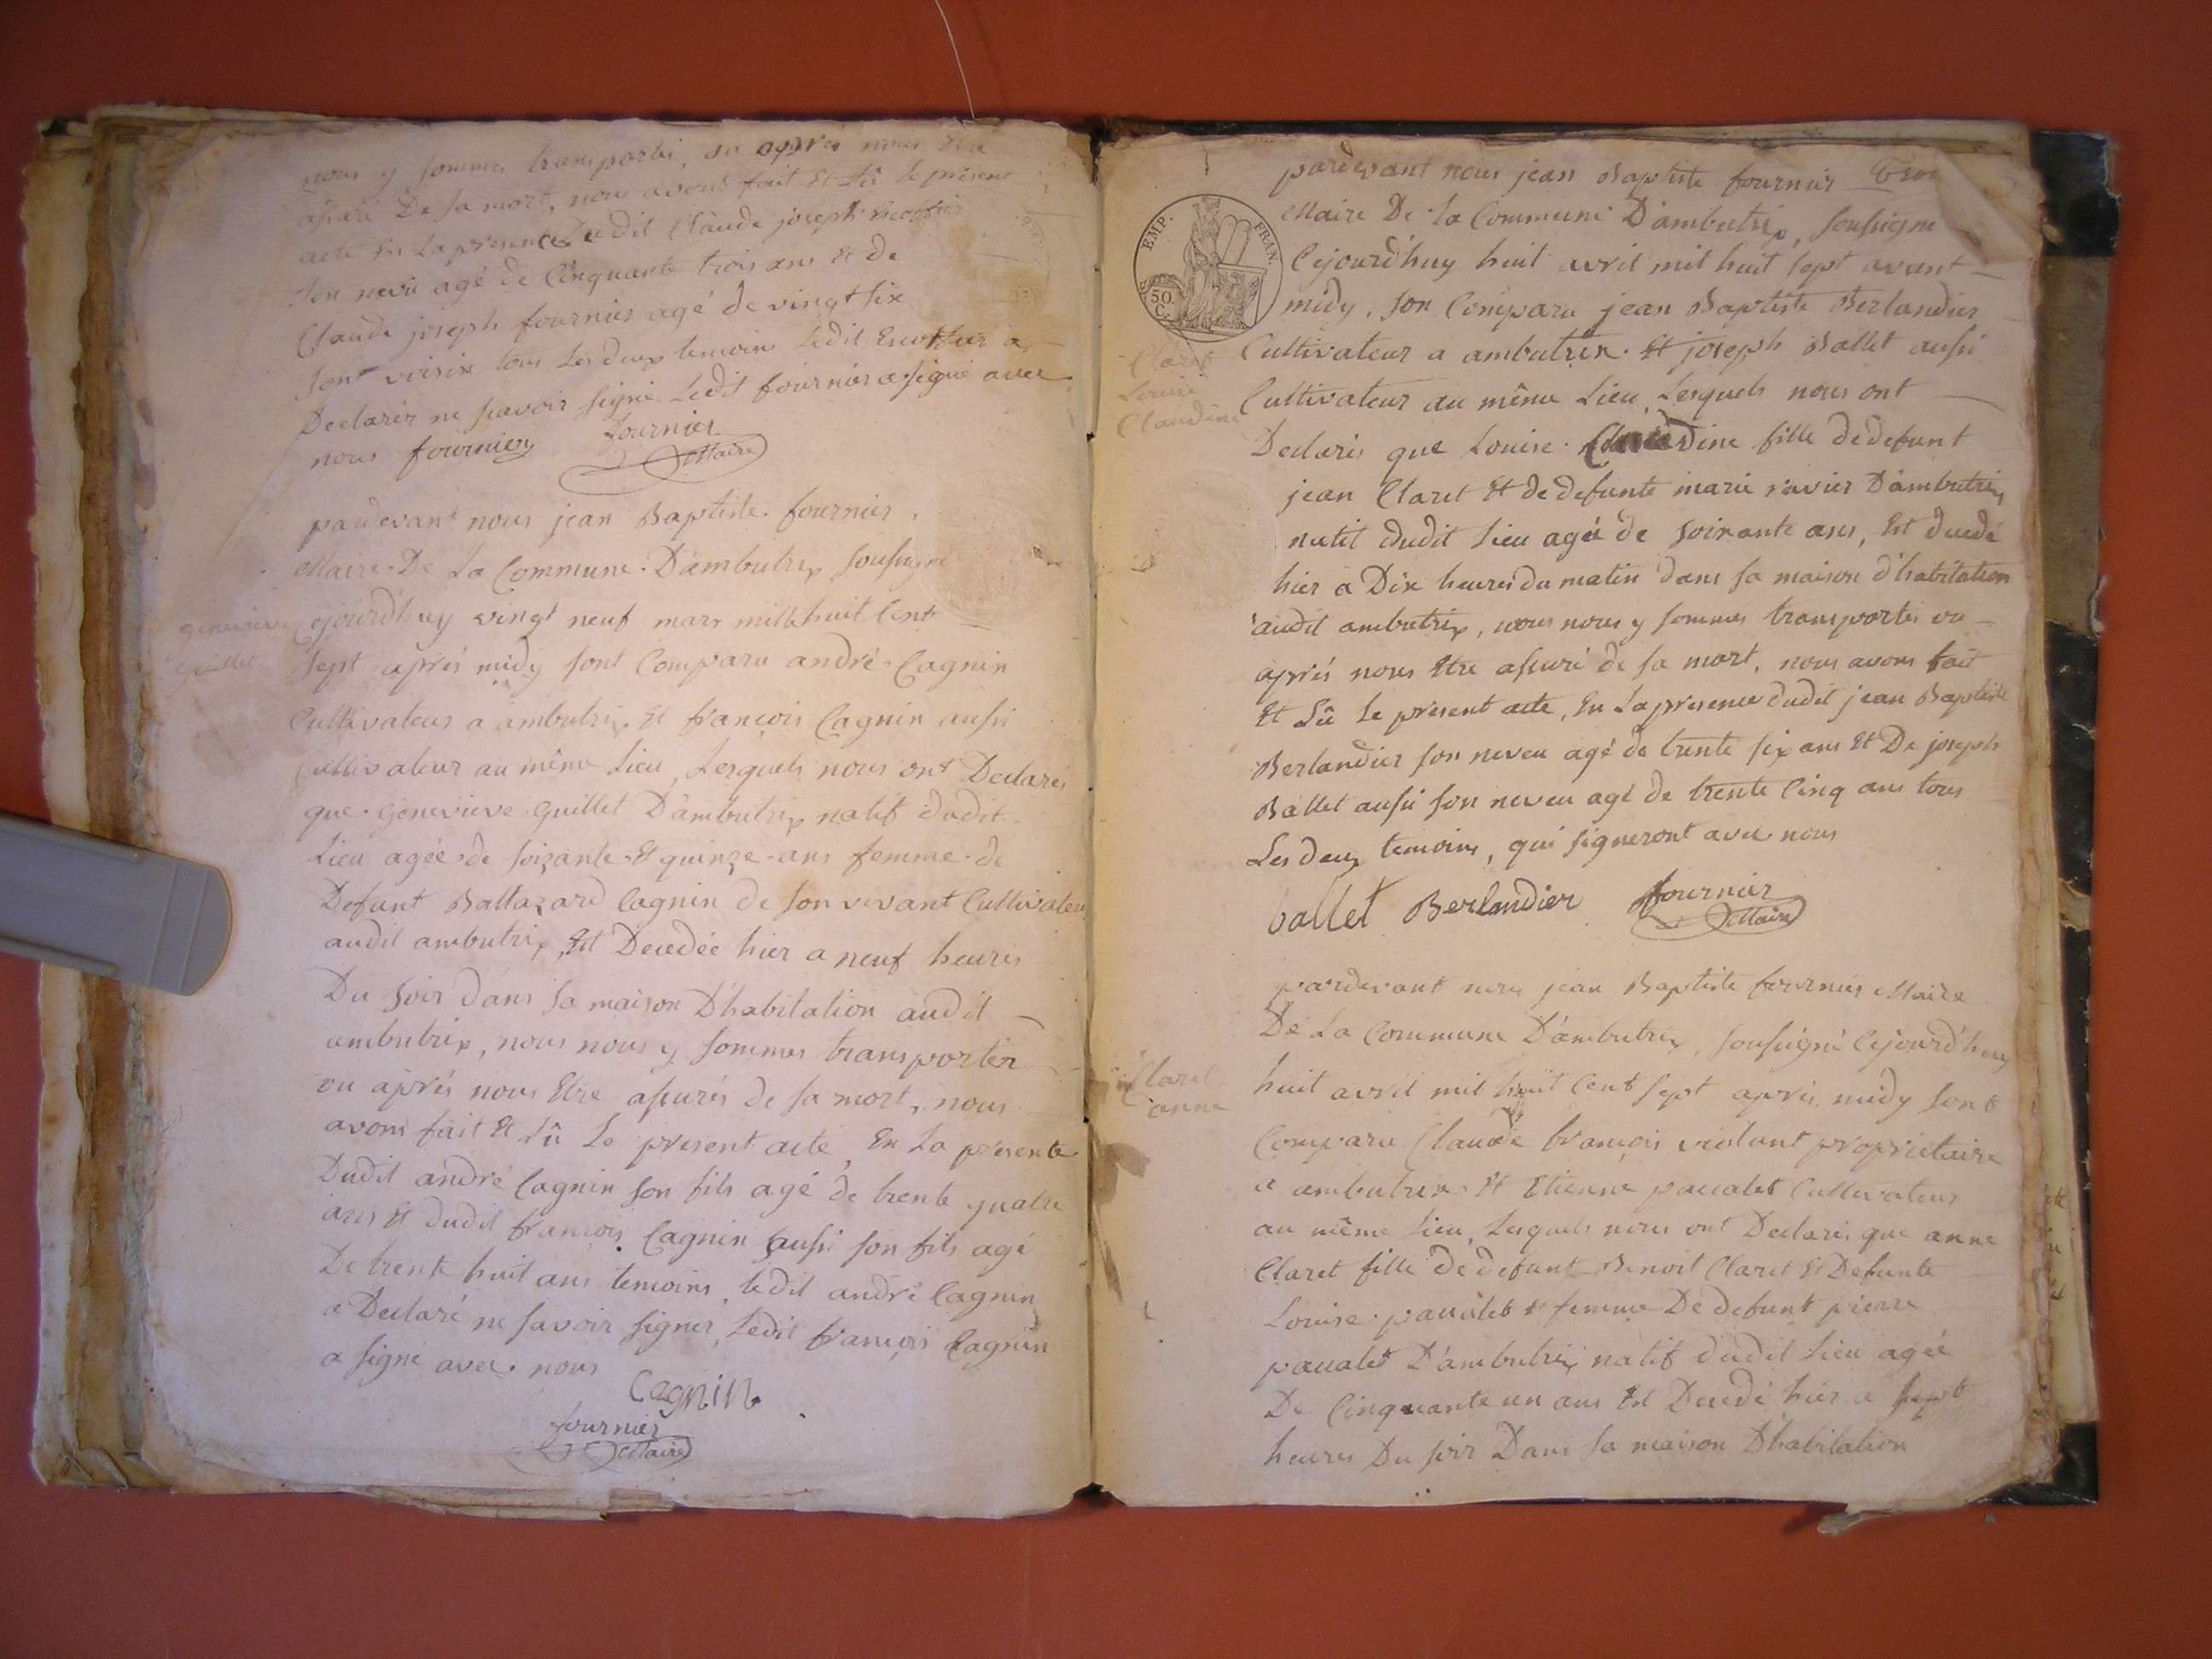 nous y sommes transportés, ou après nous être
assuré De sa mort, nous avons fait Et Lû le présent
acte En La presence dudit Claude joseph
son neveu agé de Cinquante trois ans Et de
Claude joseph fournier agé de vingt six
sont voisin tous Les deux temoins Ledit a
Declarer ne scavoir signé Ledit fournier a signé avec
nous fournier fournier
Maire
pardevant nous jean Baptiste fournier
Maire De La Commune D'ambutrix soussigné
genevieve
guillet
Cejourd'huy vingt neuf mars mille huit Cent
sept après midy sont Comparu andré Cagnin
Cultivateur a ambutrix Et françois Cagnin aussi
Cultivateur au même Lieu, Lesquels nous ont Declarés
que genevieve guillet D'ambutrix natif dudit
Lieu agée de soizante Et quinze ans femme de
Defunt Baltazard Cagnin de son vivant Cultivateur
audit ambutrix, Est Decedée hier a neuf heures
Du soir dans sa maison D'habitation audit
ambutrix, nous nous y sommes transporter
ou après nous Etre assurés de sa mort, nous
avons fait Et Lû Le present acte, En La presente
Dudit andré Cagnin son fils agé de trente quatre
ans Et dudit françois Cagnin aussi son fils agé
De trente huit ans temoins, ledit andré Cagnin
a Declaré ne savoir signer, Ledit françois Cagnin
a signé avec nous
Cagnin
fournier
Maire
pardevant nous jean Baptiste fournier
Maire De La Commune D'ambutrix, soussigné
EMP. FRAN.
50 C.
Cejourd'huy huit avril mil huit sept avant
midy, son Comparu jean Baptiste Berlandier
Claret
Louise
Claudine
Cultivateur a ambutrix. Et joseph Ballet aussi
Cultivateur au même Lieu, Lesquels nous ont
Declarés que Louise Claudine fille de defunt
jean Claret Et de defunte marie ravier D'ambutrix
natif dudit Lieu agée de soixante ans, Est ducedé
hier a Dix heures du matin dans sa maison d'habitation
audit ambutrix, nous nous y sommes transportés ou
après nous Etre assuré de sa mort, nous avons fait
Et Lû Le present acte, En La presence dudit jean Baptiste
Berlandier son neveu agé de trente six ans Et De joseph
Ballet aussi son neveu agé de trente Cinq ans tous
Les deux temoins, qui signeront avec nous
ballet Berlandier fournier
Maire
pardevant nous jean Baptiste fournier Maire
De La Commune D'ambutrix, soussigné Cejourd'huy
Claret
anne
huit avril mil huit Cent sept après midy sont
Comparu Claude françois violant proprietaire
a ambutrix Et Etienne pacalet Cultivateur
au même Lieu, Lesquels nous ont Declarés que anne
Claret fille de defunt Benoit Claret Et Defunte
Louise pacalet Et femme De defunt pierre
pacalet D'ambutrix natif dudit Lieu agée
De Cinquante un ans Est Decedé hier a sept
heures Du soir Dans sa maison D'habitation